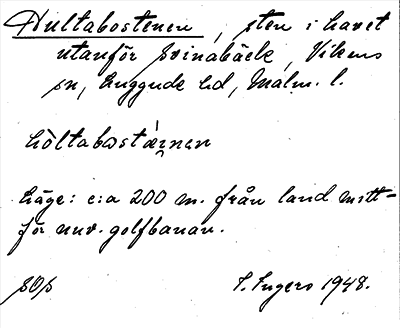 Hultabostenen, sten i havet
utanför Svinabäck, Vikens
sn, Luggude hd, Malm. l.
hòltabωstæ̀inen
Läge: c:a 200 m. från land mitt-
för nuv. golfbanan.
sOp
I. Ingers 1948.